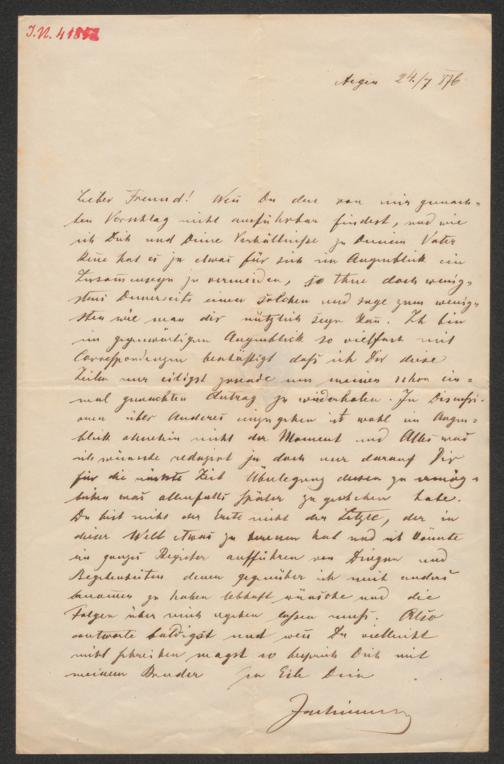 I.N. 41882
Aigen 24./7 876
Lieber Freund! Wenn Du den von mir gemach-
ten Vorschlag nicht ausführbar findest, und wie
ich Dich und Deine Verhältnisse zu Deinem Vater
kenne hat es ja etwas für sich im Augenblick ein
Zusammensein zu vermeiden, so thue doch wenig-
stens Deinerseits einen solchen und sage zum wenig-
sten wie man dir nützlich seyn kann. Ich bin
im gegenwärtigen Augenblick so vielfach mit
Correspondenzen beschäftigt daß ich Dir diese
Zeilen nur eiligst zusende um meinen schon ein-
mal gemachten Antrag zu wiederholen. In Discussi-
onen über Anderes einzugehen ist wohl im Augen-
blick ohnehin nicht der Moment und Alles was
ich wünsche reduzirt ja doch nur darauf Dir
für die nächste Zeit Überlegung dessen zu ermög-
lichen was allenfalls später zu geschehen habe.
Du bist nicht der Erste nicht der Letzte, der in
dieser Welt etwas zu bereuen hat und ich könnte
ein ganzes Register aufführen von Dingen und
Begebenheiten denen gegenüber ich mich anders
benommen zu haben lebhaft wünsche und die
Folgen über mich ergehen lassen muß. Also
antworte baldigst und wenn Du vielleicht
nicht schreiben magst so besprich Dich mit
meinem Bruder In Eile Dein